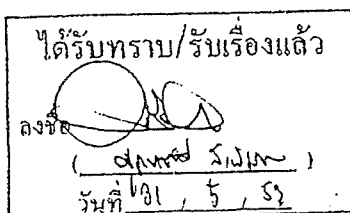 ได้รับทราบ/รับเรื่องแล้ว
ลงชื่อ
( )
วันที่ 21 / 5 / 52